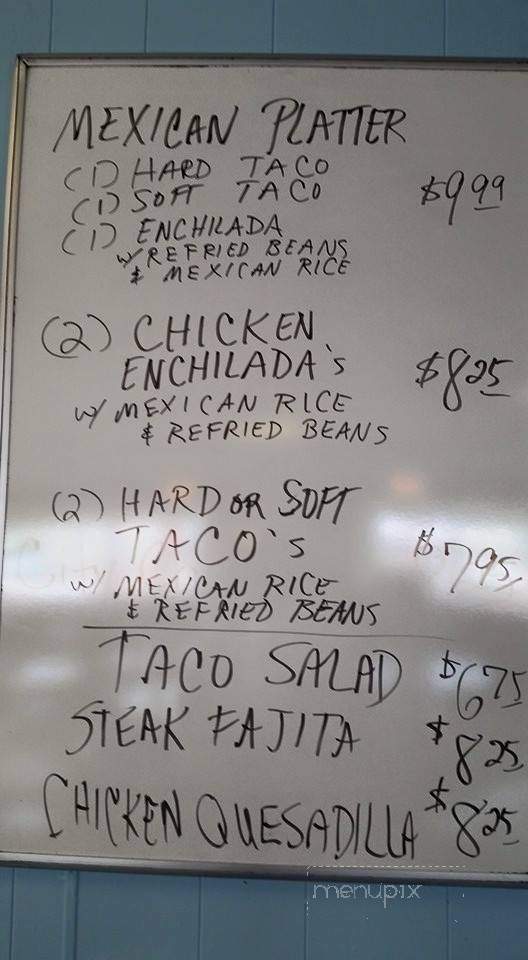 MEXICAN PLATTER
(1) HARD TACO
(1) SOFT TACO $9.99
(1) ENCHILADA
w/ REFRIED BEANS
& MEXICAN RICE
(2) CHICKEN
ENCHILADA's $8.25
w/ MEXICAN RICE
& REFRIED BEANS
(2) HARD OR SOFT
TACO's $7.95
w/ MEXICAN RICE
& REFRIED BEANS
TACO SALAD $6.75
STEAK FAJITA $8.25
CHICKEN QUESADILLA $8.25
menupix